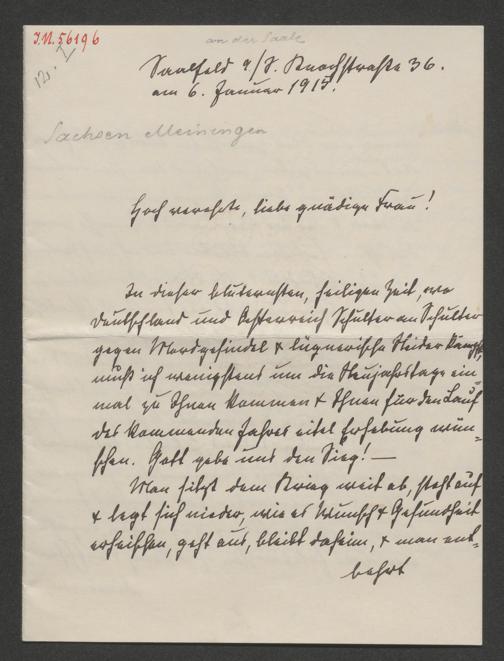 J.N. 56196
an der Saale
Saalfeld a/S. Knochstraße 36.
am 6. Januar 1915.
Sachsen Meiningen
Hoch verehrte, liebe gnädige Frau!
In dieser bluternsten, heiligen Zeit, wo
Deutschland und Oesterreich Schulter an Schulter
gegen Mordgesindel & lügnerische Neider kämpft,
muß ich wenigstens um die Neujahrstage ein-
mal zu Ihnen kommen & Ihnen für den Lauf
des kommenden Jahres eitel Erhebung wün-
schen. Gott gebe uns den Sieg! —
Man sitzt dem Krieg weit ab, steht auf
& legt sich nieder, wie es Wunsch & Gesundheit
erheischen, geht aus, bleibt daheim, & man ent-
behrt